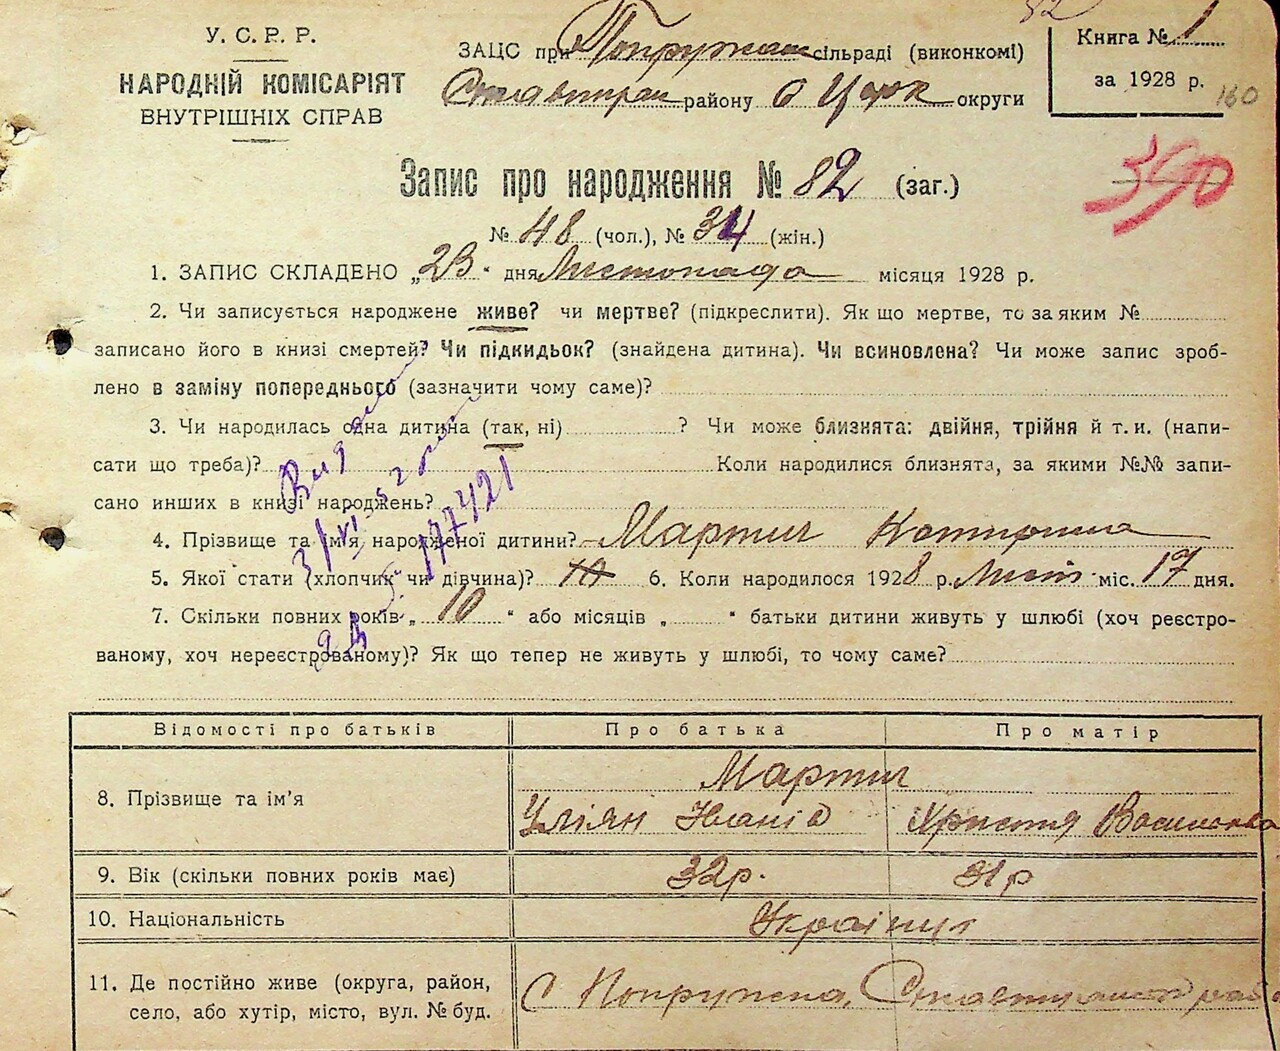 У. С. Р. Р.
НАРОДНІЙ КОМІСАРІЯТ
ВНУТРІШНІХ СПРАВ
ЗАЦС при сільраді (виконкомі)
району округи
Книга № 1
за 1928 р.
160
390
Запис про народження № 82 (заг.)
№ 48 (чол.), № 34 (жін.)
1. ЗАПИС СКЛАДЕНО „23“ дня Листопада місяця 1928 р.
2. Чи записується народжене живе? чи мертве? (підкреслити). Як що мертве, то за яким №
записано його в книзі смертей? Чи підкидьок? (знайдена дитина). Чи всиновлена? Чи може запис зроб-
лено в заміну попереднього (зазначити чому саме)?
3. Чи народилась одна дитина (так, ні) ? Чи може близнята: двійня, трійня й т. и. (напи-
сати що треба)? Коли народилися близнята, за якими №№ запи-
сано инших в книзі народжень?
4. Прізвище та ім'я народженої дитини? Мартич Катерина
5. Якої стати (хлопчик чи дівчина)? 6. Коли народилося 1928 р. Лист. міс. 17 дня.
7. Скільки повних років „ 10 “ або місяців „ “ батьки дитини живуть у шлюбі (хоч реєстро-
ваному, хоч нереєстрованому)? Як що тепер не живуть у шлюбі, то чому саме?
177421
Відомості про батьків Про батька Про матір
8. Прізвище та ім'я Мартич
Уліян Іванів Христя Василівна
9. Вік (скільки повних років має) 32р. 31р
10. Національність Українці
11. Де постійно живе (округа, район,
село, або хутір, місто, вул. № буд.
с Попружна,